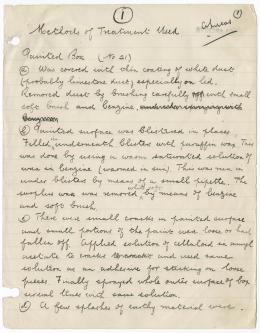 1
(1)
Methods of Treatment Used
Painted Box (No 21)
a) Was covered with thin coating of white dust
(probably limestone dust) especially on lid.
Removed dust by brushing carefully off with small
soft brush and benzine,
b) Painted surface was blistered in places.
Filled underneath blisters with paraffin wax. This
was done by using a warm saturated solution of
wax in benzine (warmed in sun). This was run in
under blisters by means of a small pipette. The
surplus wax was removed by means of benzine
and soft brush.
c) There were small cracks in painted surface
and small portions of the paint were loose or had
fallen off. Applied solution of celluloid in amyl
acetate to cracks and used same
solution as an adhesive for sticking on loose
pieces. Finally sprayed whole outer surface of box
several times with same solution.
d) A few splashes of earthy material were